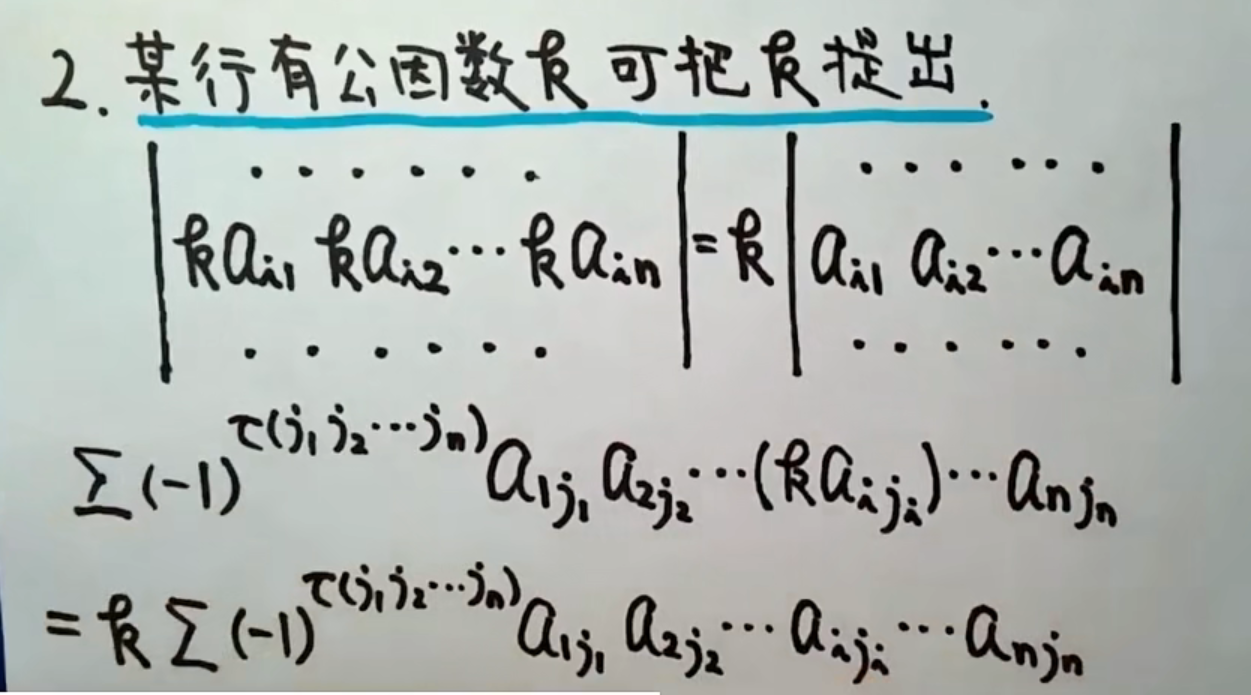 2. 某行有公因数k可把k提出.
| · · · · · · | | · · · · · · |
| ka_{i1} ka_{i2} ··· ka_{in} | = k | a_{i1} a_{i2} ··· a_{in} |
| · · · · · · | | · · · · · · |
∑(-1)^{τ(j₁j₂···jₙ)} a_{1j₁} a_{2j₂} ··· (ka_{ijᵢ}) ··· a_{njₙ}
= k∑(-1)^{τ(j₁j₂···jₙ)} a_{1j₁} a_{2j₂} ··· a_{ijᵢ} ··· a_{njₙ}